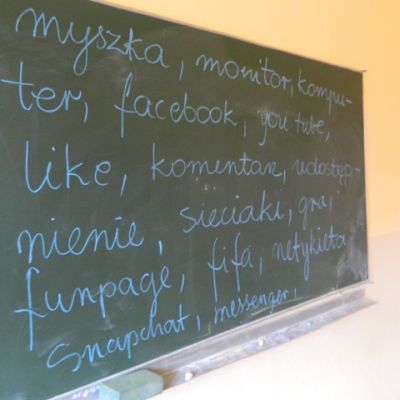 myszka, monitor, kompu-
ter, facebook, you tube,
like, komentarz, udostęp-
nienie, sieciaki, gra,
funpage, fifa, netykieta,
snapchat, messenger,